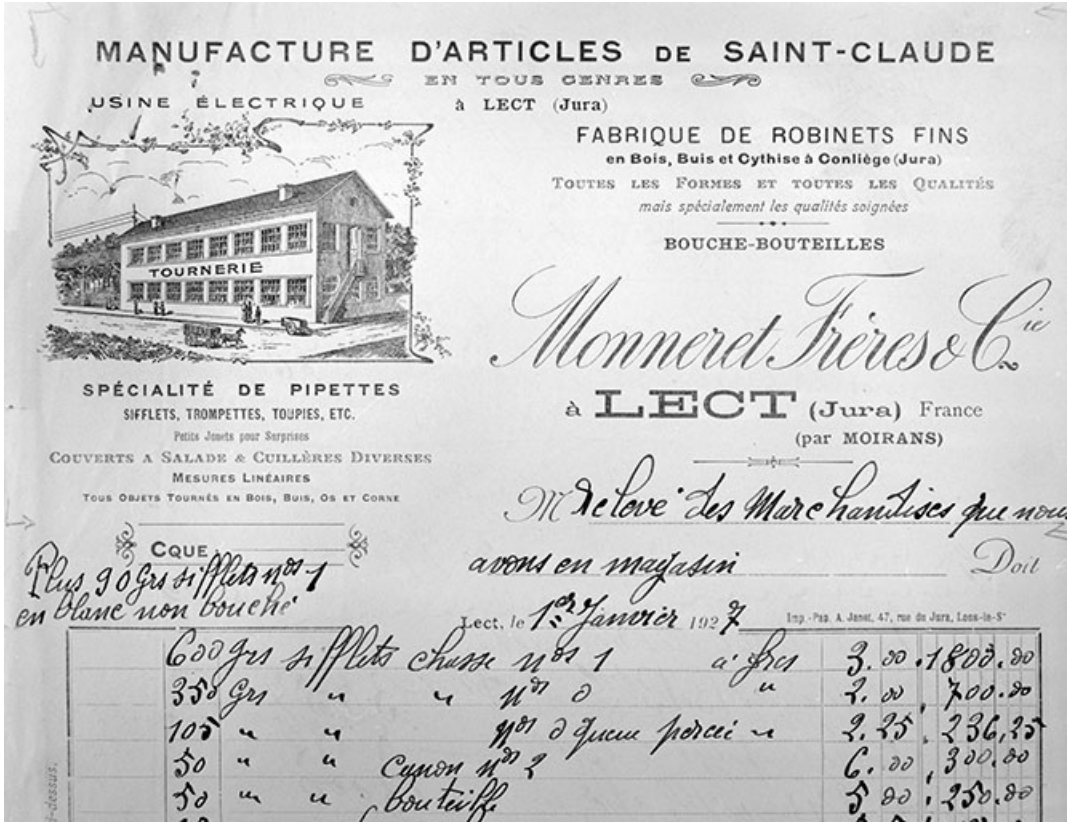 MANUFACTURE D'ARTICLES DE SAINT-CLAUDE
EN TOUS GENRES
USINE ÉLECTRIQUE
à LECT (Jura)
TOURNERIE
SPÉCIALITÉ DE PIPETTES
SIFFLETS, TROMPETTES, TOUPIES, ETC.
Petits Jouets pour Surprises
COUVERTS A SALADE & CUILLÈRES DIVERSES
MESURES LINÉAIRES
TOUS OBJETS TOURNÉS EN BOIS, BUIS, OS ET CORNE
FABRIQUE DE ROBINETS FINS
en Bois, Buis et Cythise à Conliège (Jura)
TOUTES LES FORMES ET TOUTES LES QUALITÉS
mais spécialement les qualités soignées
BOUCHE-BOUTEILLES
Monneret Frères & Cie
à LECT (Jura) France
(par MOIRANS)
M Relevé des Marchandises que nous
avons en magasin Doit
CQUE
Plus 90 Grs sifflets nos 1
en blanc non bouché
Lect, le 1er Janvier 1927
Imp.-Pap. A. Janet, 47, rue de Jura, Lons-le-Sr
600 grs sifflets chasse nos 1 à frcs 3.00 1800.00
350 Grs " " nos 0 " 2.00 700.00
105 " " nos 0 queue percée " 2.25 236,25
50 " " canon nos 2 6.00 300.00
50 " " bouteille 5 00 250.00
-dessus.